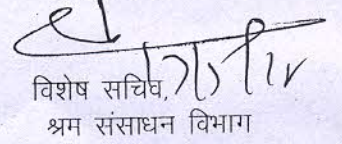 विशेष सचिव,
श्रम संसाधन विभाग